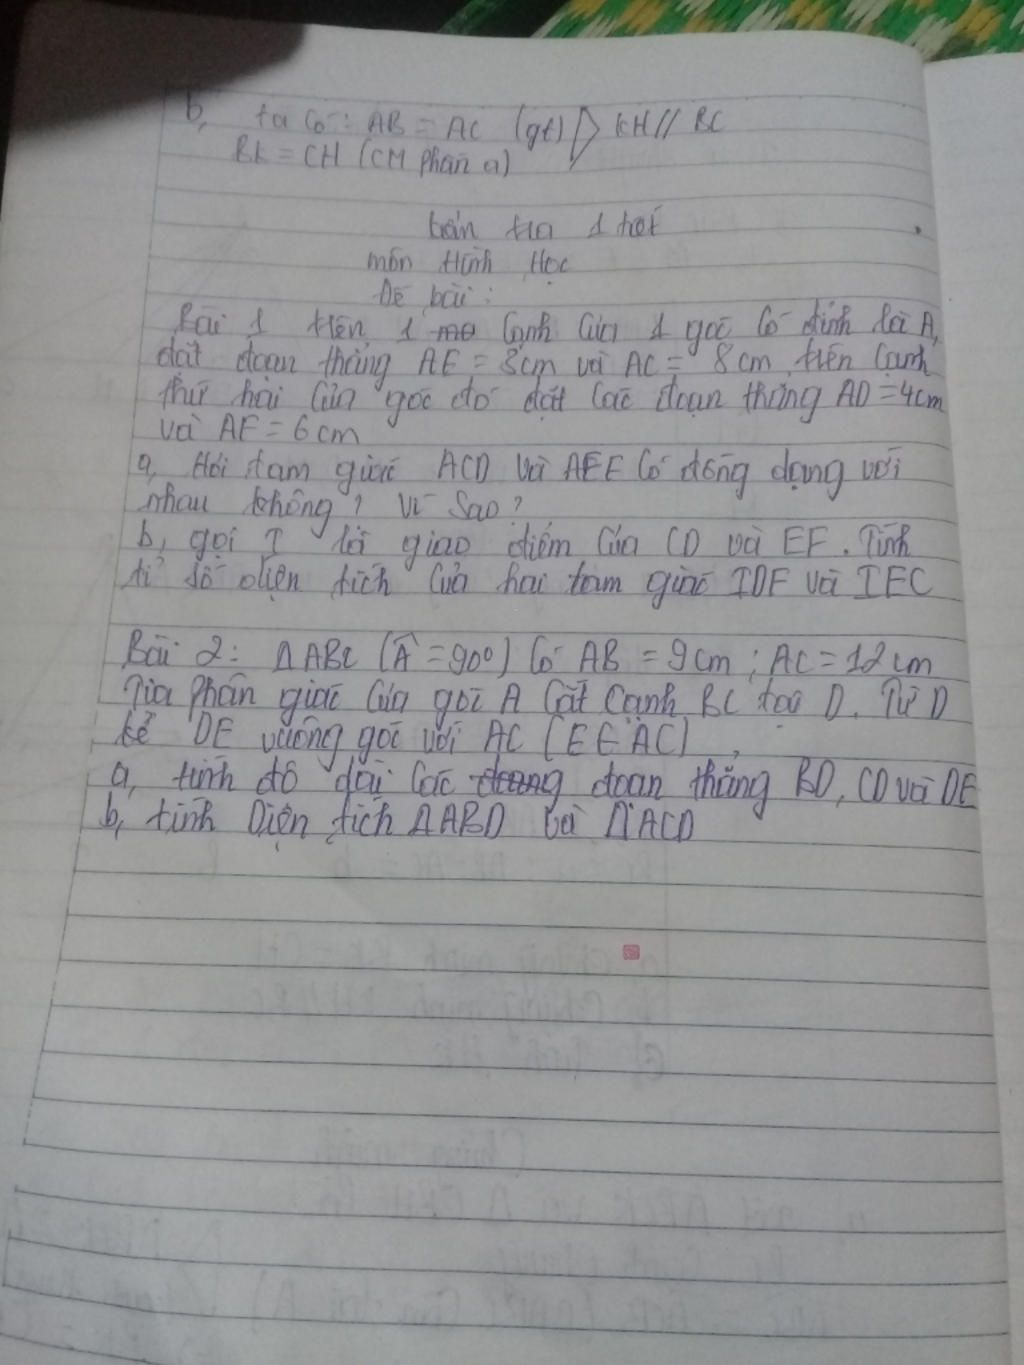 b, ta có: AB = AC (gt) } KH // BC
BK = CH (CM phần a)
môn Hình Học
Đề bài:
Bài 1 trên 1 cạnh của 1 góc có đỉnh là A,
đặt đoạn thẳng AE = 3cm và AC = 8cm, trên cạnh
thứ hai của góc đó đặt các đoạn thẳng AD = 4cm
và AF = 6cm
a, Hỏi tam giác ACD và AEF có đồng dạng với
nhau không? Vì sao?
b, gọi I là giao điểm của CD và EF. Tính
tỉ số diện tích của hai tam giác IDF và IEC
Bài 2: ΔABC (Â = 90°) có AB = 9cm; AC = 12cm
Tia phân giác của góc A cắt cạnh BC tại D. Từ D
kẻ DE vuông góc với AC (E ∈ AC)
a, tính độ dài các đoạn thẳng BD, CD và DE
b, tính Diện tích ΔABD và ΔACD